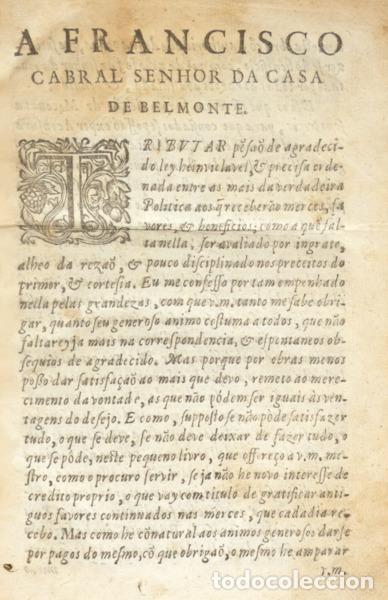 A FRANCISCO
CABRAL SENHOR DA CASA
DE BELMONTE.
TRIBVTAR pẽsaõ de agradeci-
do ley he inviolavel, & precisa orde-
nada entre as mais da verdadeira
Politica aos q̃ receberão merces, fa
vores, & beneficios; como a quẽ fal-
ta nella, ser avaliado por ingrato,
alheo da rezaõ, & pouco disciplinado nos preceitos do
primor, & cortesia. Eu me confesso por tam empenhado
nella pelas grandezas, com que v.m. tanto me sabe obri-
gar, quanto seu generoso animo costuma a todos, que não
faltarey ja mais na correspondencia, & espontaneos ob-
sequios de agradecido. Mas porque por obras menos
posso dar satisfaçaõ ao mais que devo, remeto ao mere-
cimento da vontade, as que não pódem ser iguais às ven-
tagens do desejo. E como, supposto se não póde satisfazer
tudo, o que se deve, se não deve deixar de fazer tudo, o
que se póde, neste pequeno livro, que offereço a v.m. mo-
stro, como o procuro servir, se ja não he novo interesse de
credito proprio, o que vay com titulo de gratificar anti-
guos favores continuados nas merces, que cada dia re-
cebo. Mas como he cõnatural aos animos generosos darse
por pagos do mesmo, cõ que obrigaõ, o mesmo he amparar
v.m.
todocoleccion.net